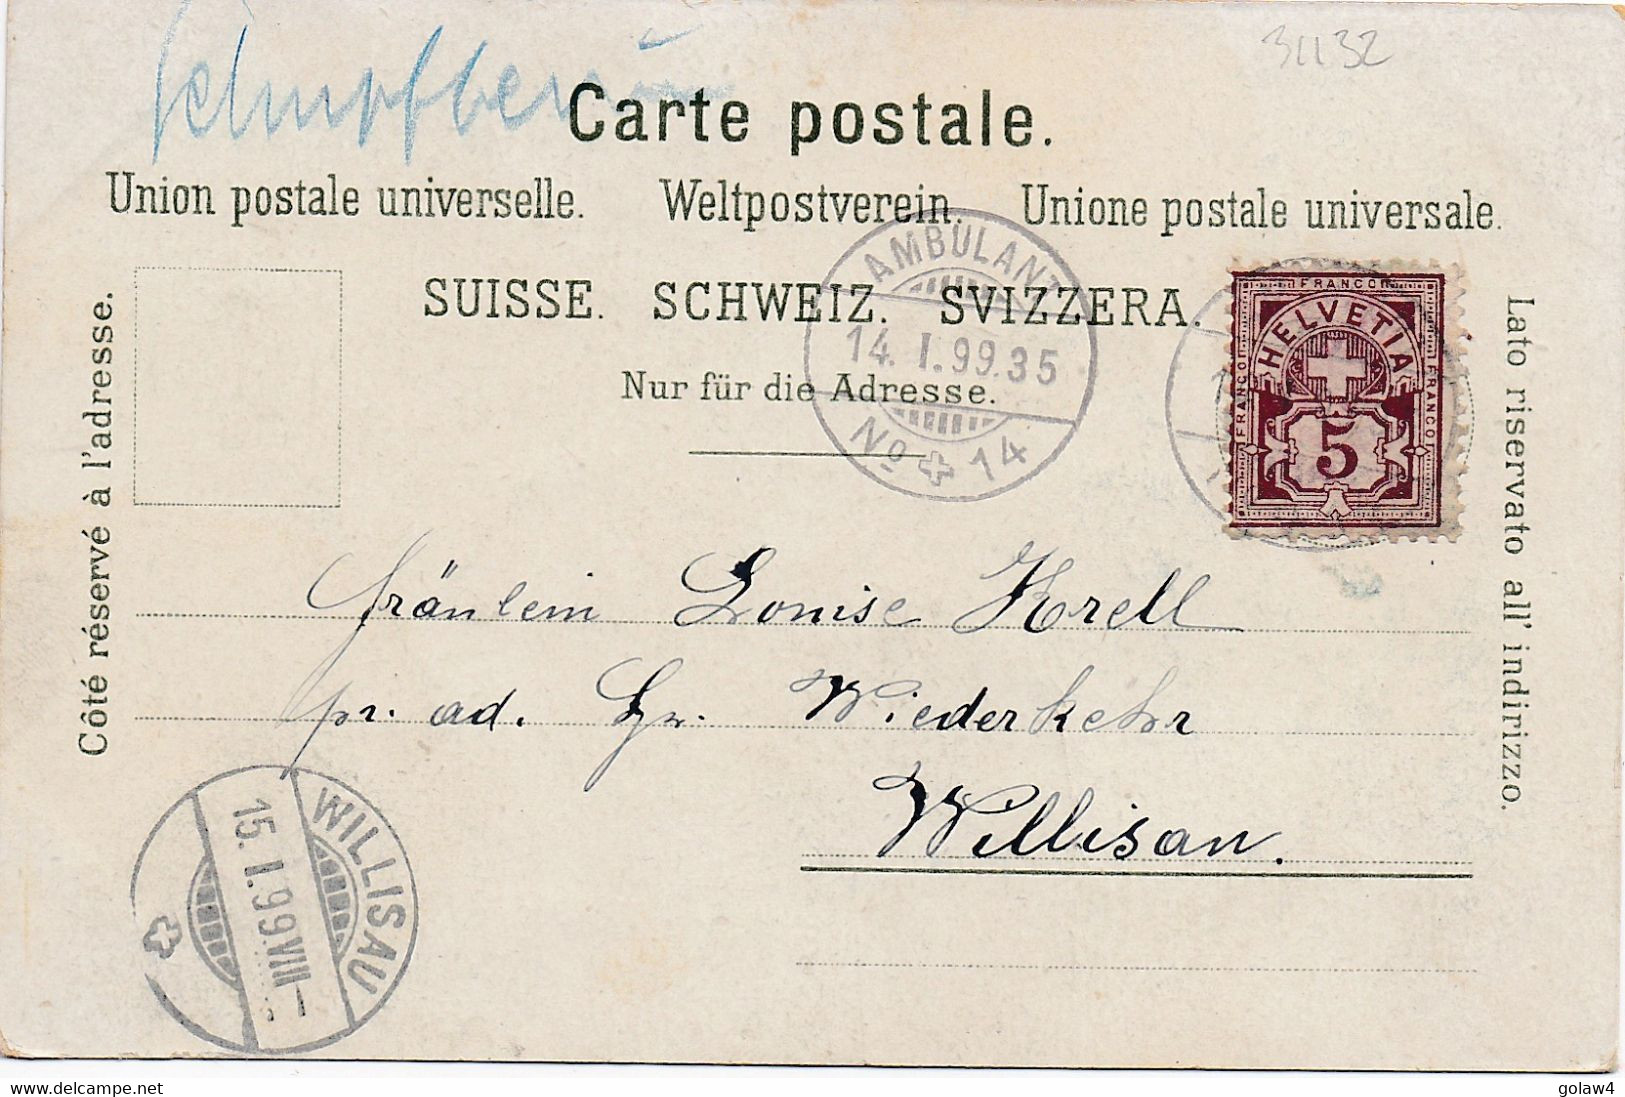 31132
Carte postale.
Union postale universelle. Weltpostverein. Unione postale universale.
SUISSE. SCHWEIZ. SVIZZERA.
Nur für die Adresse.
Côté réservé à l'adresse.
Lato riservato all' indirizzo.
AMBULANT
14. I. 99. 35
No 14
FRANCO
FRANCO
FRANCO
HELVETIA
5
Fräulein Louise Krell
pr. ad. Hr. Wiederkehr
Willisau.
WILLISAU
15. I. 99. VIII –
www.delcampe.net
golaw4